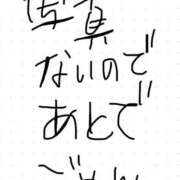 写真
ないので
あとで
ごめん